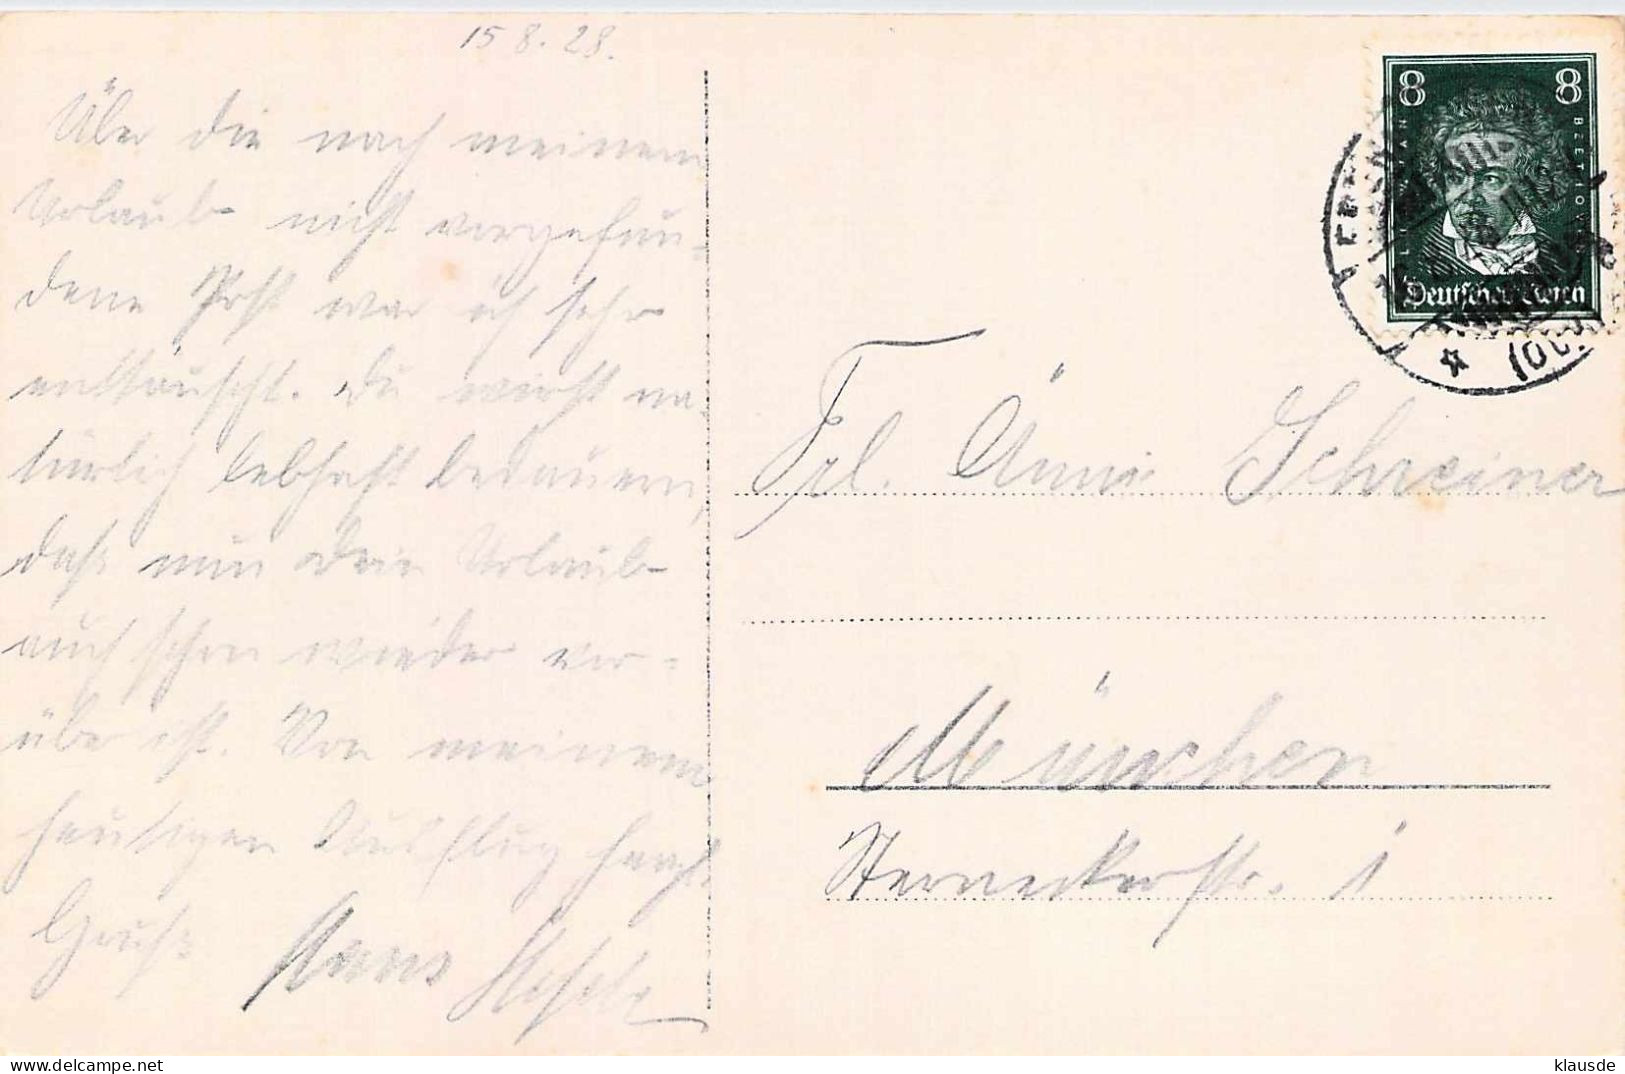 15 8. 28.
Über die nach meinem
Urlaub nicht vorgefun-
dene Post war ich sehr
enttäuscht. Du wirst na-
türlich lebhaft bedauern,
daß nun Dein Urlaub
auch schon wieder vor-
über ist. Von meinem
heutigen Ausflug herzl.
Gruß Hans
8 8
LUDWIG VAN BEETHOVEN
Deutsches Reich
Frl. Änni Schreiner
München
Sterneckerstr. 1
klausde